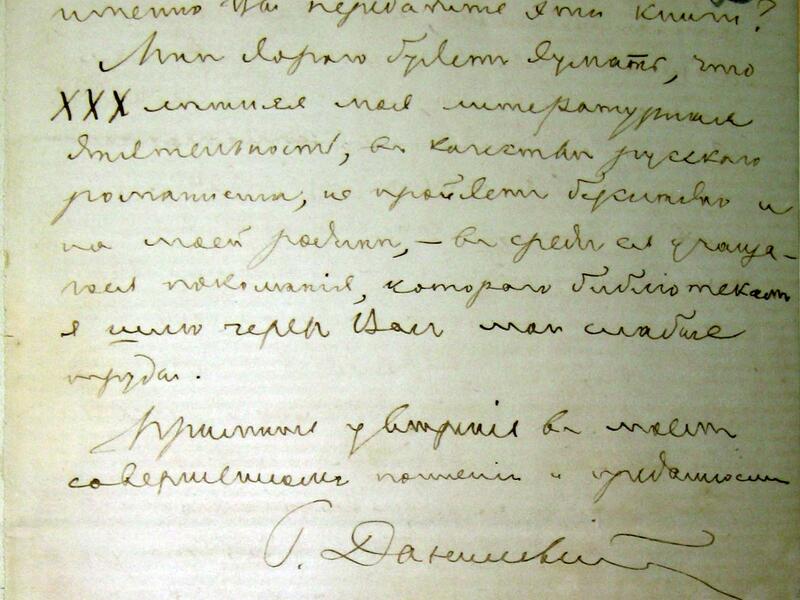 именно Вы передадите эти книги?
Мнѣ дорого будетъ думать, что
XXX лѣтняя моя литературная
дѣятельность, въ качествѣ русскаго
романиста, не пройдетъ безслѣдно и
на моей родинѣ, — въ средѣ ея учаща-
гося поколѣнія, котораго библіотекамъ
я шлю черезъ Васъ мои слабые
труды.
Примите увѣреніе въ моемъ
совершенномъ почтеніи и преданности
Г. Данилевскій